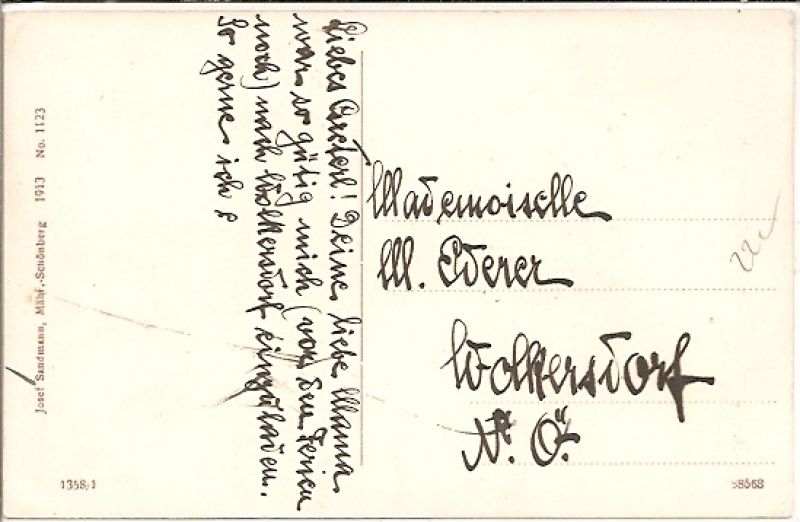 Liebes Greterl! Deine liebe Mama
war so gütig mich (vor den Ferien
noch) nach Wolkersdorf einzuladen.
So gerne ich
Mademoiselle
M. Ederer
Wolkersdorf
N. Ö.
Josef Sandmann, Mähr.-Schönberg 1913 No. 1123
1358/1
58568